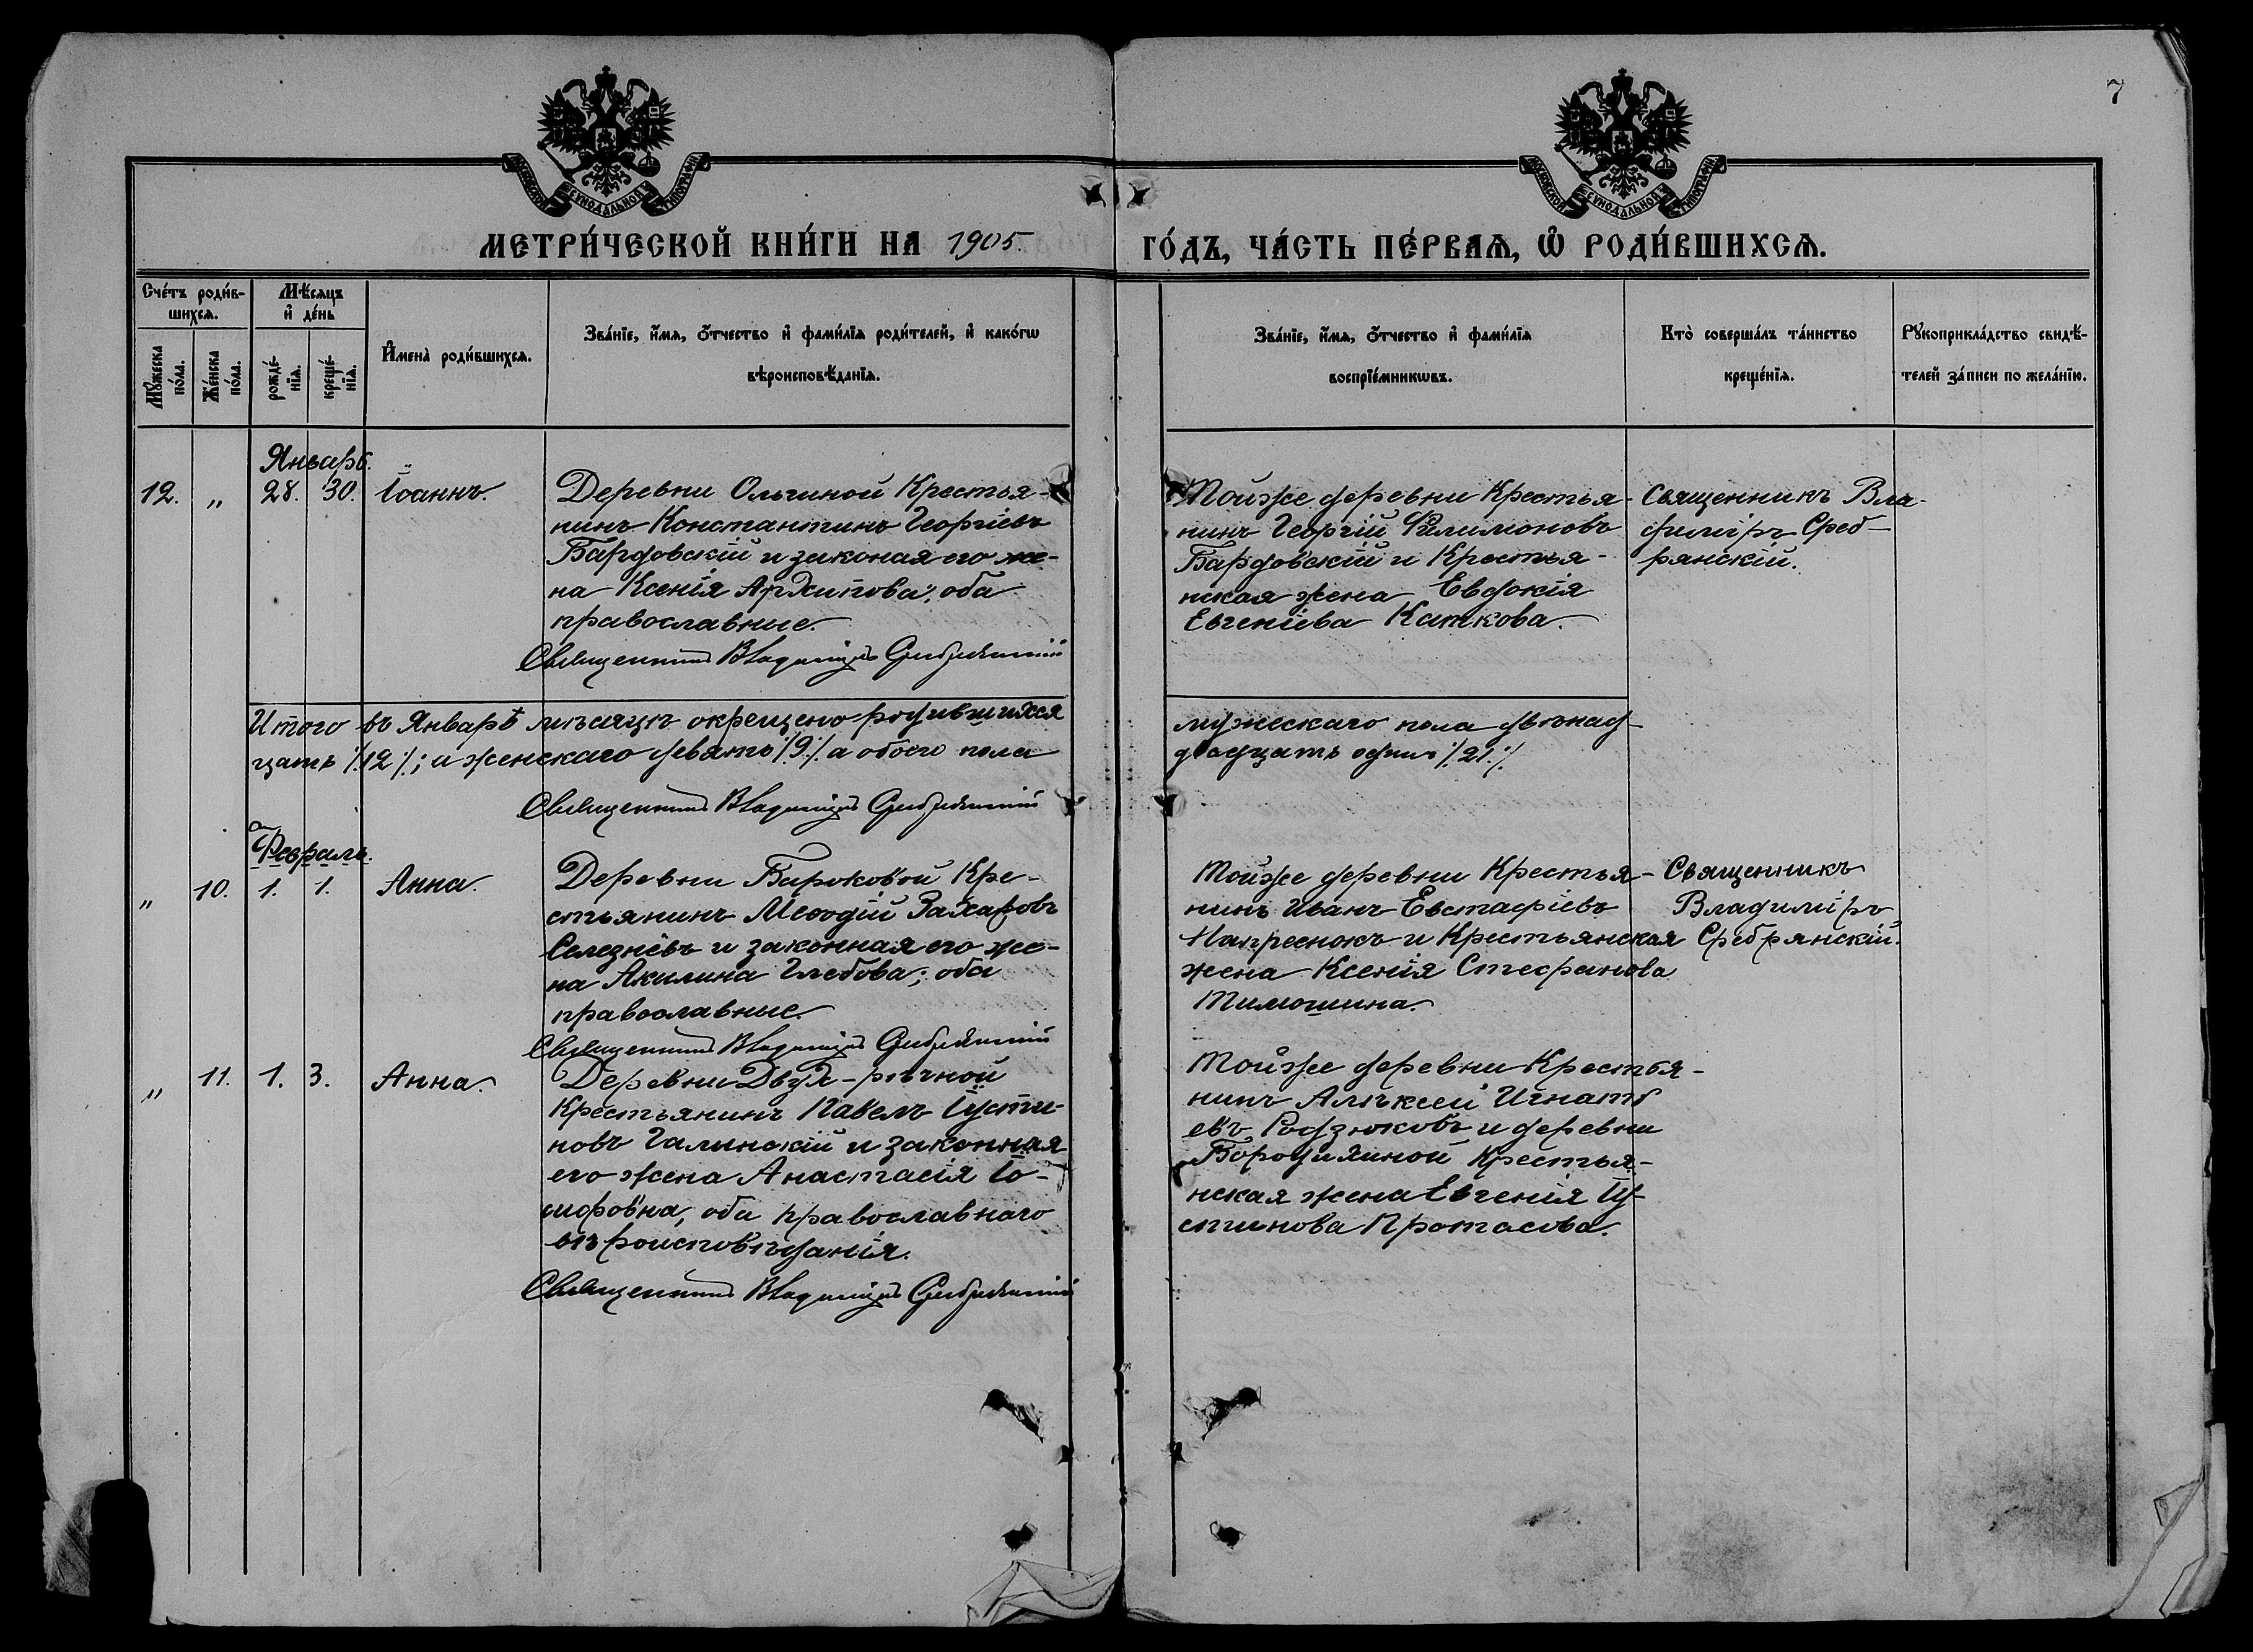 7
МОСКОВСКОЙ СѴНОДАЛЬНОЙ ТИПОГРАФІИ
МОСКОВСКОЙ СѴНОДАЛЬНОЙ ТИПОГРАФІИ
МЕТРИ́ЧЕСКОЙ КНИ́ГИ НА 1905. ГО́ДЪ, ЧА́СТЬ ПЕ́РВАѦ, Ѿ РОДИ́ВШИХСѦ.
Сче́тъ роди́в-
шихсѧ.
Мꙋ́жеска по́ла.
Же́нска по́ла.
Мѣ́сѧцъ
и҆ де́нь
рожде́-
нїѧ.
креще́-
нїѧ.
И҆мена̀ роди́вшихсѧ.
Зва́нїе, и҆́мѧ, ѻ҆́тчество и҆ фами́лїѧ роди́телей, и҆ како́гѡ
вѣроисповѣ́данїѧ.
Зва́нїе, и҆́мѧ, ѻ҆́тчество и҆ фами́лїѧ
воспрїе́мникѡвъ.
Кто̀ соверша́лъ та́инство
креще́нїѧ.
Рꙋкоприкла́дство свидѣ́-
телей за́писи по жела́нїю.
Январь.
12. „ 28. 30. Іоаннъ.
Деревни Ольгиной Крестья-
нинъ Константинъ Георгіевъ
Бардовскій и законая его же-
на Ксенія Архипова; оба
православные.
Священникъ Владиміръ Сребрянскій
Тойже деревни Крестья-
нинъ Георгій Филимоновъ
Бардовскій и Крестья-
нская жена Евдокія
Евгеніева Каткова.
Священникъ Вла-
диміръ Среб-
рянскій.
Итого въ Январѣ мѣсяцѣ окрещено родившихся мужескаго пола двѣнад-
цать /.12/.; а женскаго девять /.9/. а обоего пола двадцать одинъ /.21./.
Священникъ Владиміръ Сребрянскій
Февраль.
„ 10. 1. 1. Анна.
Деревни Бироковой Кре-
стьянинъ Меѳодій Захаровъ
Селезнёвъ и законная его же-
на Акилина Глебова; оба
православные.
Священникъ Владиміръ Сребрянскій
Тойже деревни Крестья-
нинъ Иванъ Евстафіевъ
и Крестьянская
жена Ксенія Стефанова
Тимошина.
Священникъ
Владиміръ
Сребрянскій.
„ 11. 1. 3. Анна.
Деревни Двух-рѣчной
Крестьянинъ Павелъ Іусти-
новъ Галинскій и законная
его жена Анастасія Іо-
сифовна, оба православнаго
вѣроисповѣданія.
Священникъ Владиміръ Сребрянскій
Тойже деревни Крестья-
нинъ Алѣксей Игнать
евъ Родзюковъ и деревни
Крестья-
нская жена Евгенія Іу-
стинова Протасова.